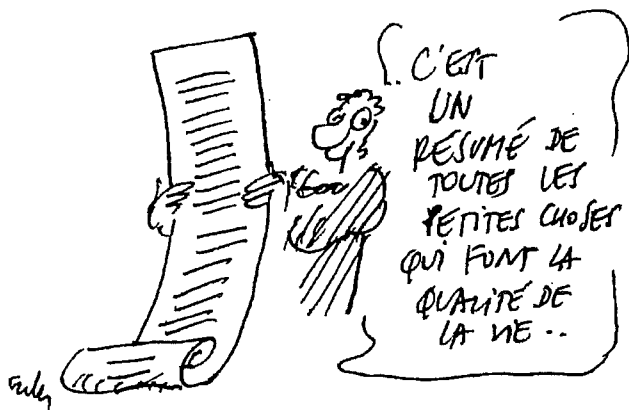 ..C'EST
UN
RÉSUMÉ DE
TOUTES LES
PETITES CHOSES
QUI FONT LA
QUALITÉ DE
LA VIE..